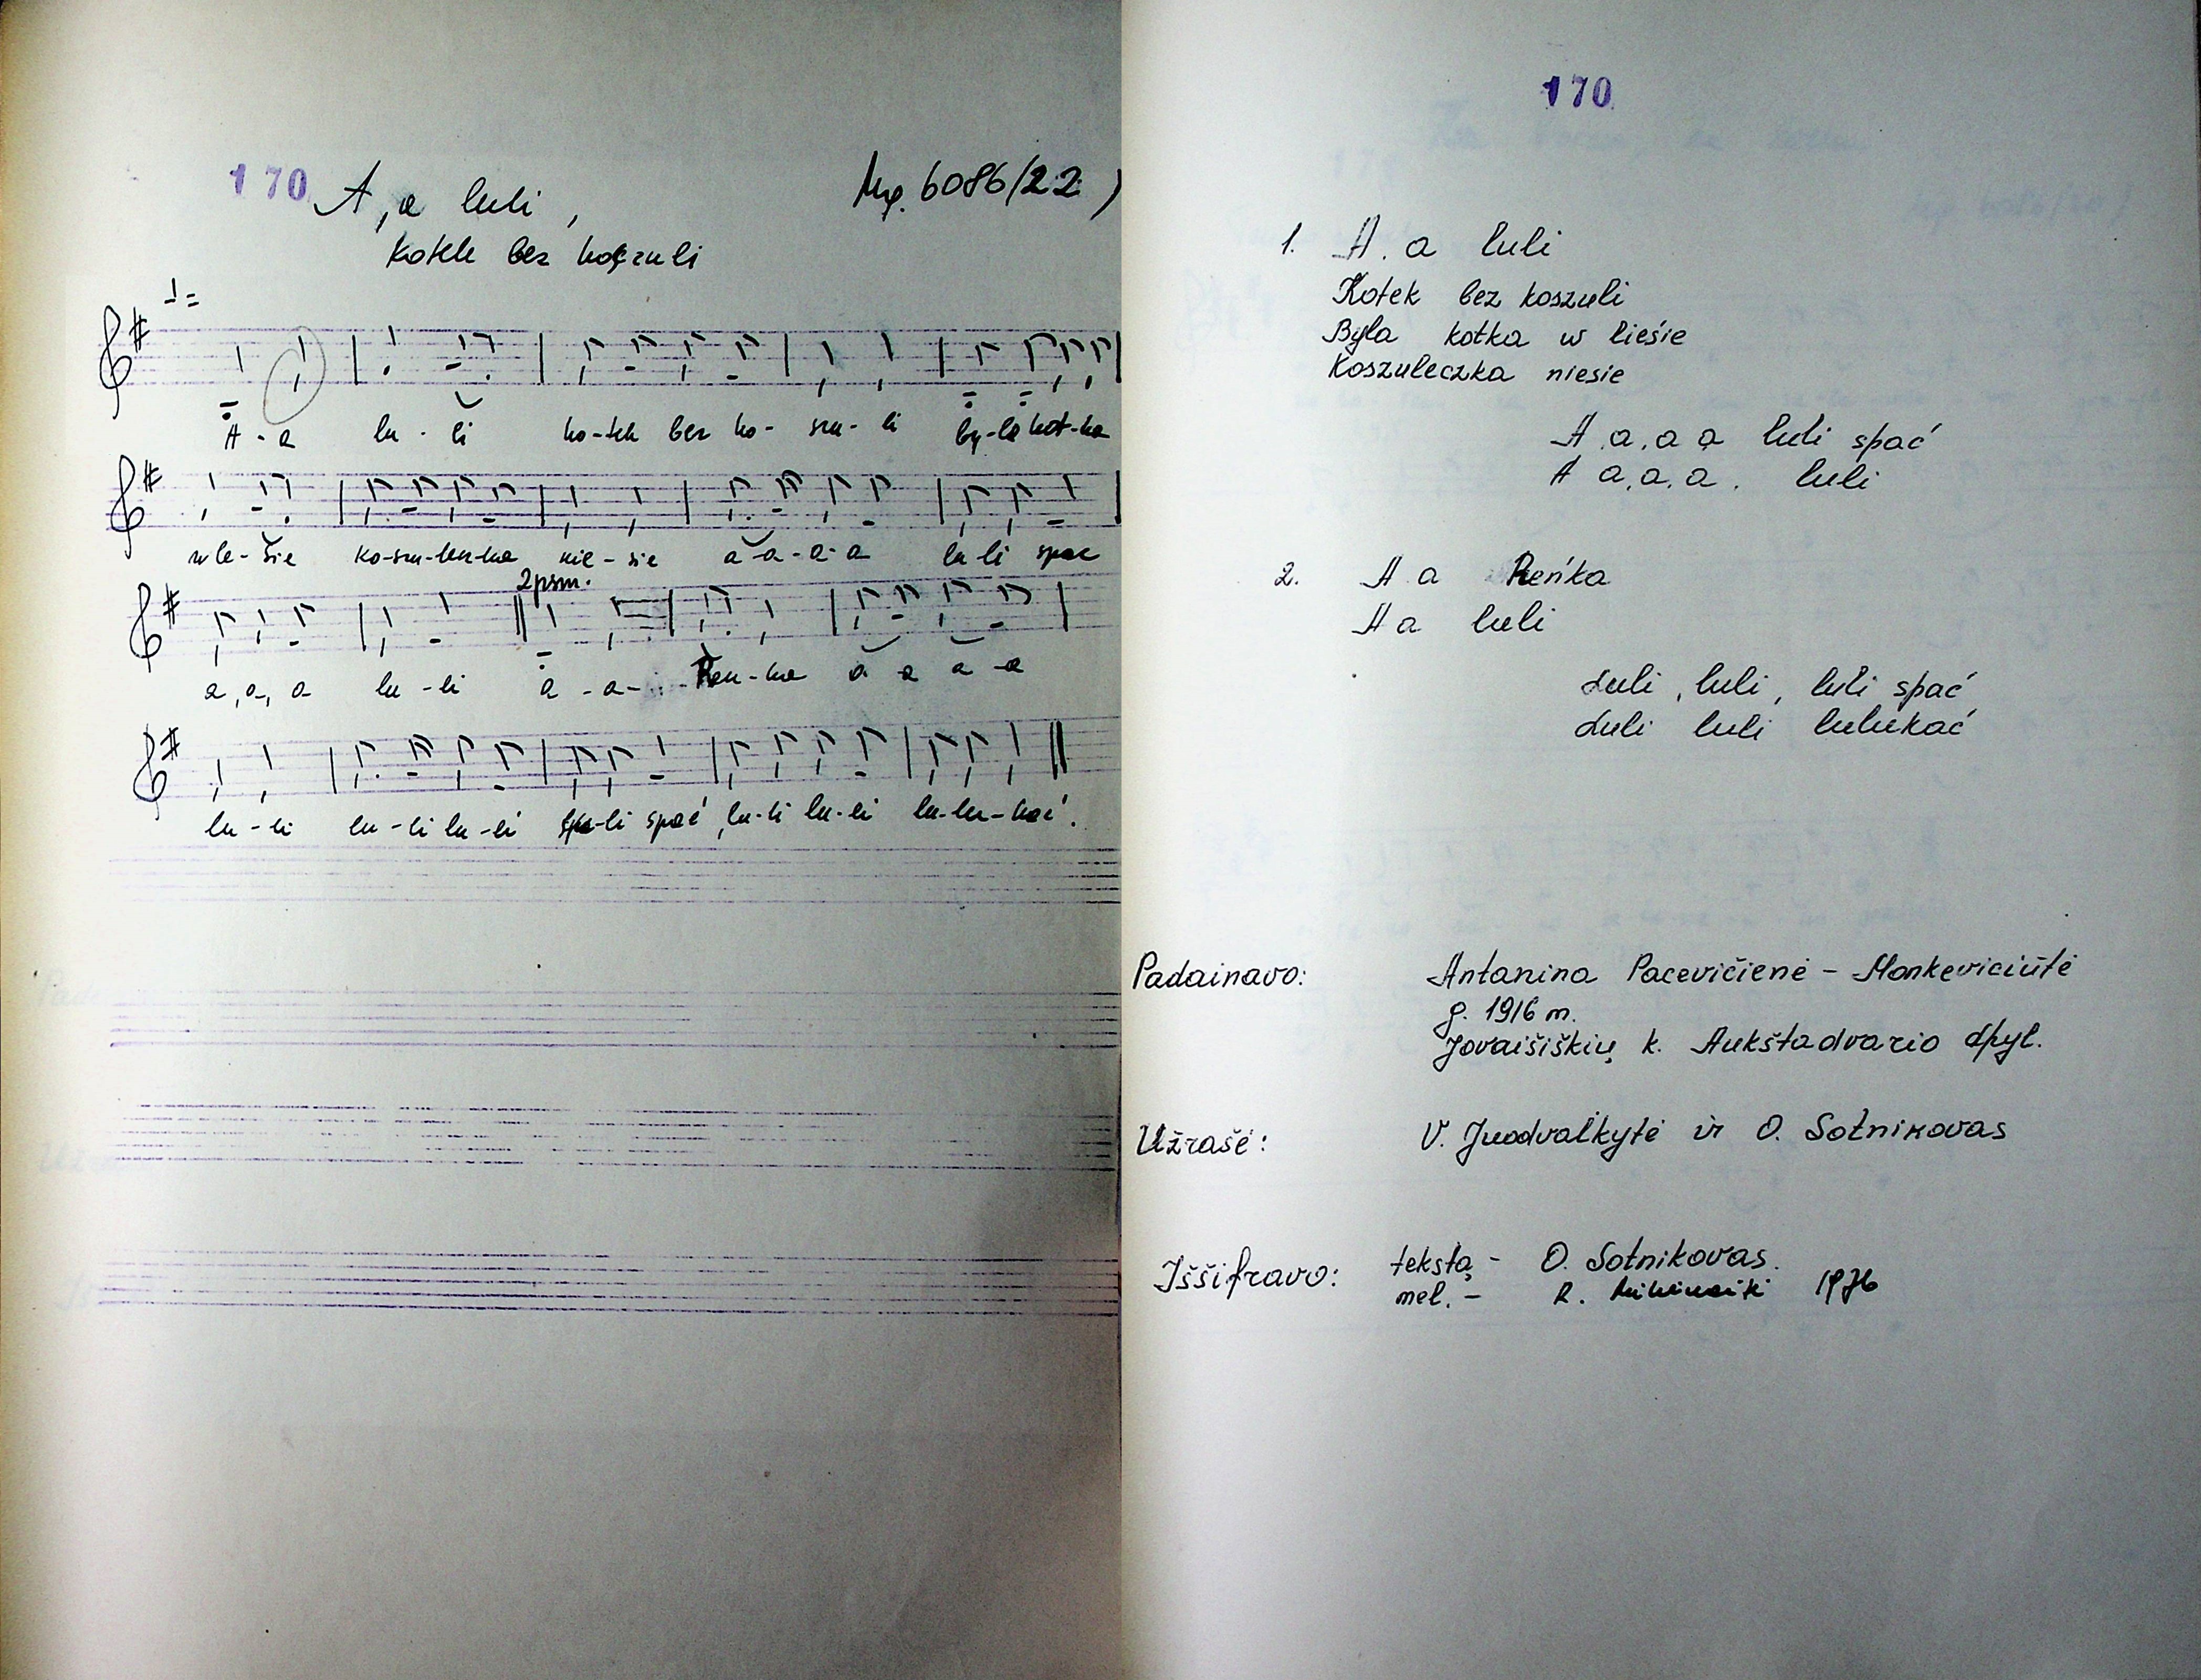 170
A, a luli,
Kotek bez koszuli
Mg. 6086/22)
A - a lu - li ko-tek bez ko- szu- li by-la kot-ka
w le- sie ko-szu-lecz-ka nie - sie a-a-a-a lu-li spac
2 psm.
a, a, a lu - li a - a - Ren-ka a a a -a
lu - li lu - li lu - li li spać, lu-li lu-li lu-lu-kać.
170
1. A. a luli
Kotek bez koszuli
Byla kotka w lieśie
Koszuleczka niesie
A a, a a luli spać
A a, a, a. luli
2. A a Reńka
A a luli
Luli, luli, luli spać
Luli luli lulukać
Padainavo: Antanina Pacevičienė - Monkeviciūtė
g. 1916 m.
Jovaišiškių k. Aukštadvario apyl.
Užrašė: V. Juodvalkytė ir O. Sotnikovas
Iššifravo: tekstą - O. Sotnikovas.
mel. - R. 1976